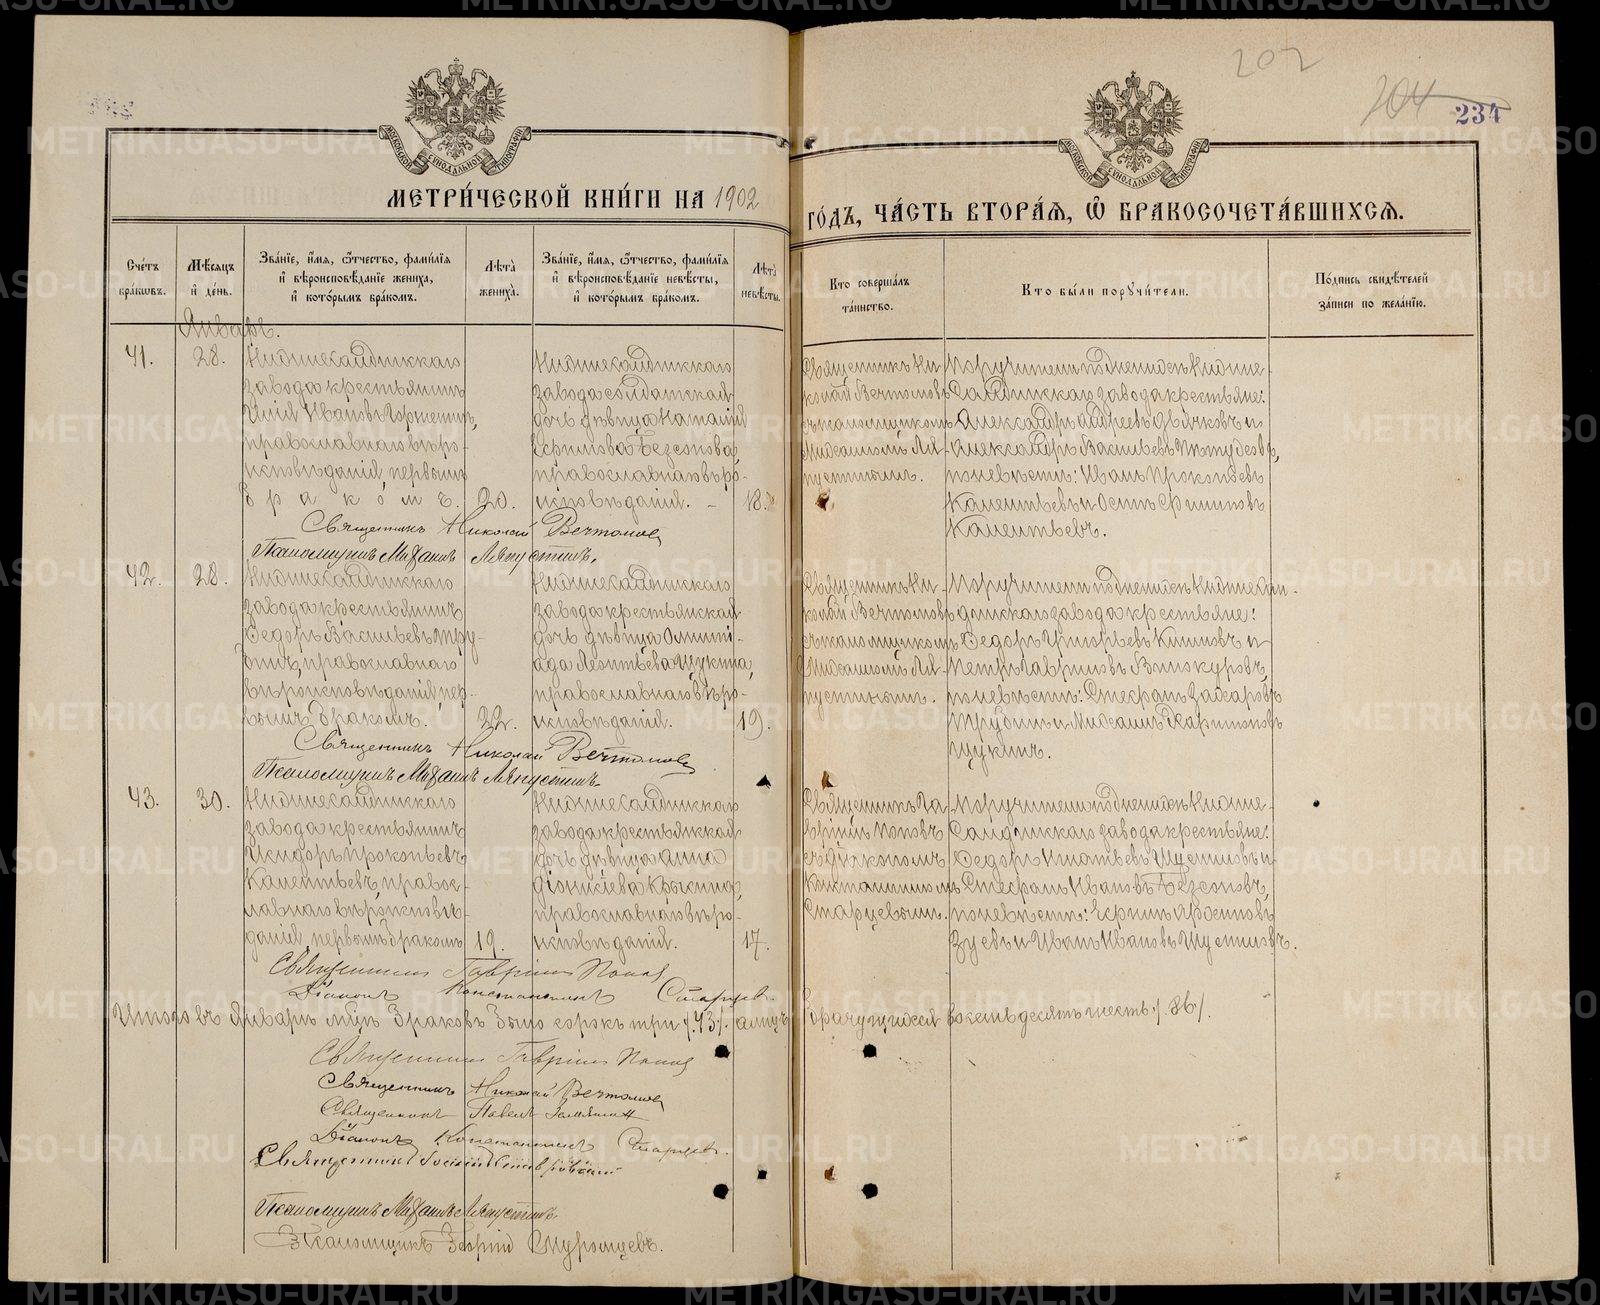 202
204
234
МЕТРИ́ЧЕСКОЙ КНИ́ГИ НА 1902
ГО́ДЪ, ЧА́СТЬ ВТОРА́Я, Ѿ БРАКОСОЧЕТА́ВШИХСЯ.
Сче́тъ бра́ковъ.
Мѣ́сяцъ и҆ де́нь.
Зва́нїе, и҆́мя, ѻ҆́тчество, фами́лїя и҆ вѣроисповѣ́данїе жениха̀, и҆ кото́рымъ бра́комъ.
Лѣ́та̀ жениха̀.
Зва́нїе, и҆́мя, ѻ҆́тчество, фами́лїя и҆ вѣроисповѣ́данїе невѣ́сты, и҆ кото́рымъ бра́комъ.
Лѣ́та̀ невѣ́сты.
Кто соверша́лъ та́инство.
Кто бы́ли порꙋчи́тели.
По́дпись свидѣ́телей за́писи по жела́нїю.
Январь.
41.
28.
Нижнесалдинскаго
завода крестьянинъ
Иванов
православнаго вѣро-
исповѣданія, первымъ
бракомъ.
20.
Нижнесалдинскаго
завода солдатская
дочь дѣвица Наталія
Безсонова,
православнаго вѣро-
исповѣданія.
18.
Священникъ Ни-
колай Вечтомовъ
съ псаломщикомъ
Михаиломъ Ля-
пустинымъ.
Поручители по женихѣ Нижне-
Салдинскаго завода крестьяне:
Александръ Андреевъ и
Александръ Васильевъ
по невѣстѣ: Иванъ Прокопьевъ
Калентьевъ и
Калентьевъ.
Священникъ Николай Вечтомовъ
Псаломщикъ Михаилъ Ляпустинъ.
42.
28.
Нижнесалдинскаго
завода крестьянинъ
Ѳедоръ Васильевъ Тру-
бинъ, православнаго
вѣроисповѣданія, пер-
вымъ бракомъ.
22.
Нижнесалдинскаго
завода крестьянская
дочь дѣвица Олимпі-
ада Леонтьева Щукина,
православнаго вѣро-
исповѣданія.
19.
Священникъ Ни-
колай Вечтомовъ
съ псаломщикомъ
Михаиломъ Ля-
пустинымъ.
Поручители по женихѣ Нижнесал-
динскаго завода крестьяне:
Ѳедоръ Григорьевъ и
Петръ Гавриловъ Винокуровъ,
по невѣстѣ: Стефанъ Захаровъ
Трубинъ и Михаилъ Харитоновъ
Щукинъ.
Священникъ Николай Вечтомовъ
Псаломщикъ Михаилъ Ляпустинъ.
43.
30.
Нижнесалдинскаго
завода крестьянинъ
Исидоръ Прокопьевъ
Калентьевъ, правос-
лавнаго вѣроисповѣ-
данія, первымъ бракомъ
19.
Нижнесалдинскаго
завода крестьянская
дочь дѣвица Анна
Діонисіева Крысина,
православнаго вѣро-
исповѣданія.
17.
Священникъ Га-
вріилъ Поповъ
съ діакономъ
Константиномъ
Старцевымъ.
Поручители по женихѣ Нижне-
Салдинскаго завода крестьяне:
Ѳедоръ Игнатьевъ и
Стефанъ Ивановъ Безсоновъ,
по невѣстѣ:
Зуевъ и Иванъ Ивановъ
Священникъ Гавріилъ Поповъ
Діаконъ Константинъ Старцевъ.
Итого въ Январѣ мцѣ браковъ было сорокъ три /43/. а лицъ
брачущихся восемьдесятъ шесть /86/.
Священникъ Гавріилъ Поповъ
Священникъ Николай Вечтомовъ
Священникъ Павелъ
Діаконъ Константинъ Старцевъ.
Священникъ
Псаломщикъ Михаилъ Ляпустинъ.
Псаломщикъ Георгій
METRIKI.GASO-URAL.RU